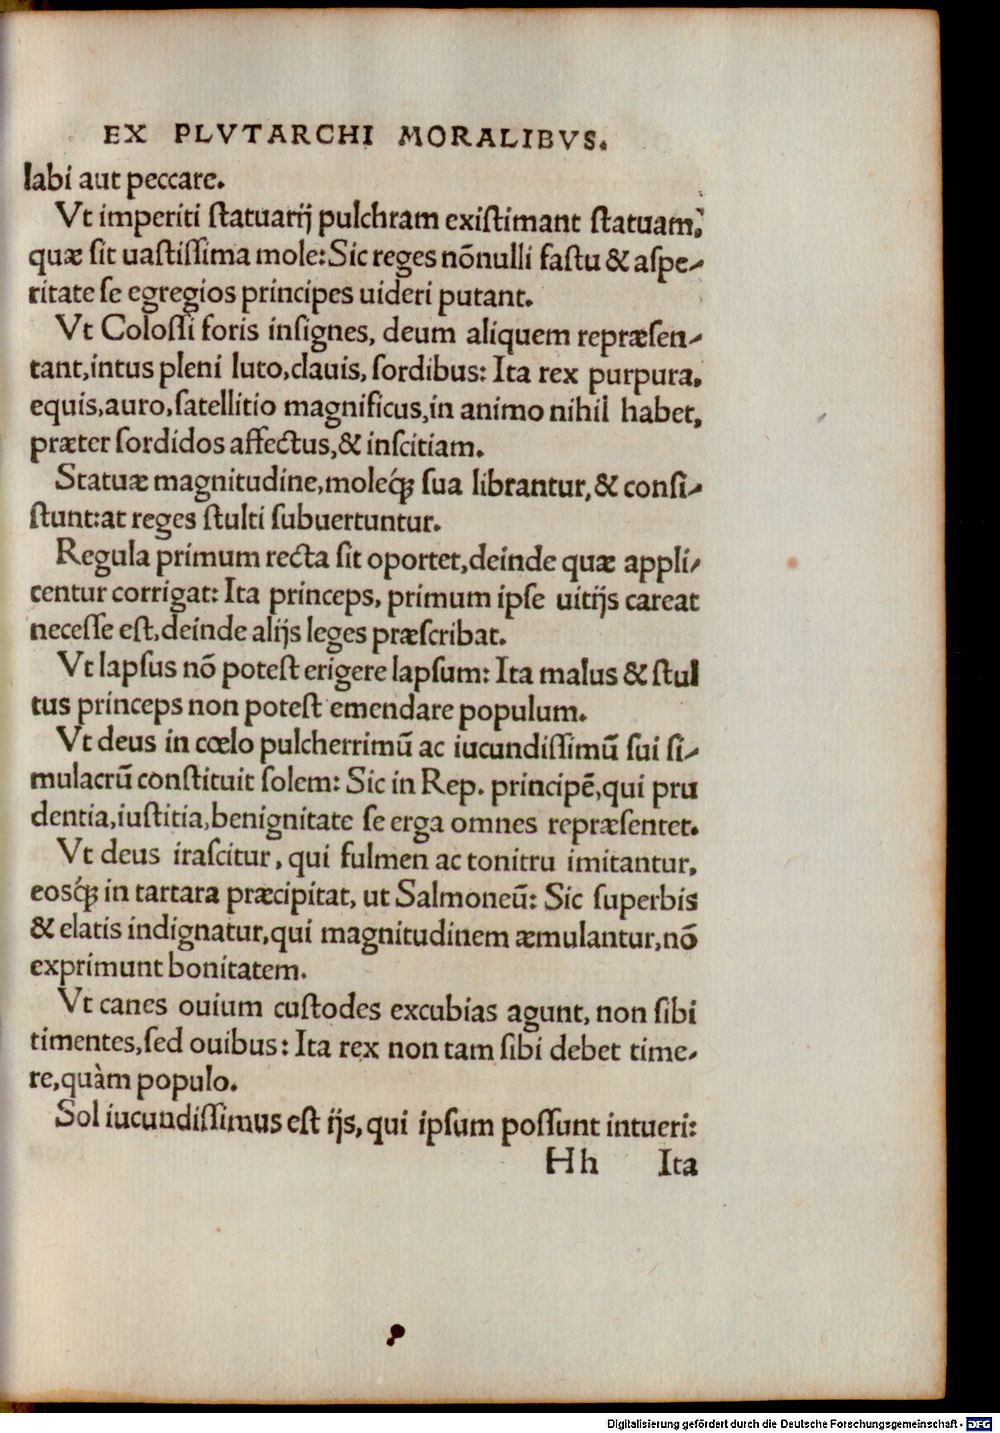 EX PLVTARCHI MORALIBVS.
labi aut peccare.
Vt imperiti ſtatuarij pulchram exiſtimant ſtatuam,
quæ ſit uaſtiſſima mole: Sic reges nõnulli faſtu & aſpe-
ritate ſe egregios principes uideri putant.
Vt Coloſſi foris inſignes, deum aliquem repræſen-
tant, intus pleni luto, clauis, ſordibus: Ita rex purpura,
equis, auro, ſatellitio magnificus, in animo nihil habet,
præter ſordidos affectus, & inſcitiam.
Statuæ magnitudine, moleq́ꝫ ſua librantur, & conſi-
ſtunt: at reges ſtulti ſubuertuntur.
Regula primum recta ſit oportet, deinde quæ appli-
centur corrigat: Ita princeps, primum ipſe uitijs careat
neceſſe eſt, deinde alijs leges præſcribat.
Vt lapſus nõ poteſt erigere lapſum: Ita malus & ſtul
tus princeps non poteſt emendare populum.
Vt deus in cœlo pulcherrimũ ac iucundiſſimũ ſui ſi-
mulacrũ conſtituit ſolem: Sic in Rep. principẽ, qui pru
dentia, iuſtitia, benignitate ſe erga omnes repræſentet.
Vt deus iraſcitur, qui fulmen ac tonitru imitantur,
eosq́ꝫ in tartara præcipitat, ut Salmoneũ: Sic ſuperbis
& elatis indignatur, qui magnitudinem æmulantur, nõ
exprimunt bonitatem.
Vt canes ouium cuſtodes excubias agunt, non ſibi
timentes, ſed ouibus: Ita rex non tam ſibi debet time-
re, quàm populo.
Sol iucundiſſimus eſt ijs, qui ipſum poſſunt intueri:
Hh Ita
Digitalisierung gefördert durch die Deutsche Forschungsgemeinschaft - DFG